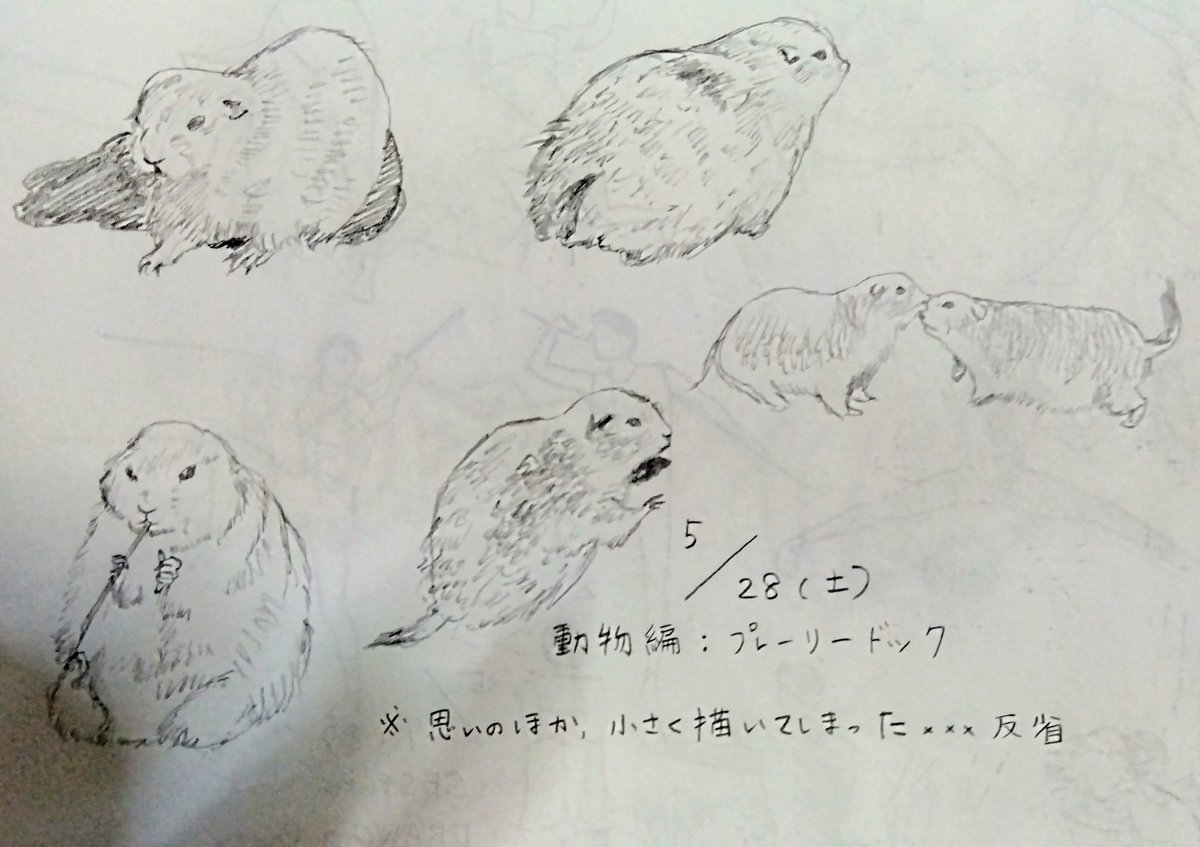 5/28(土)
動物編:プレーリードック
※ 思いのほか, 小さく描いてしまった××× 反省